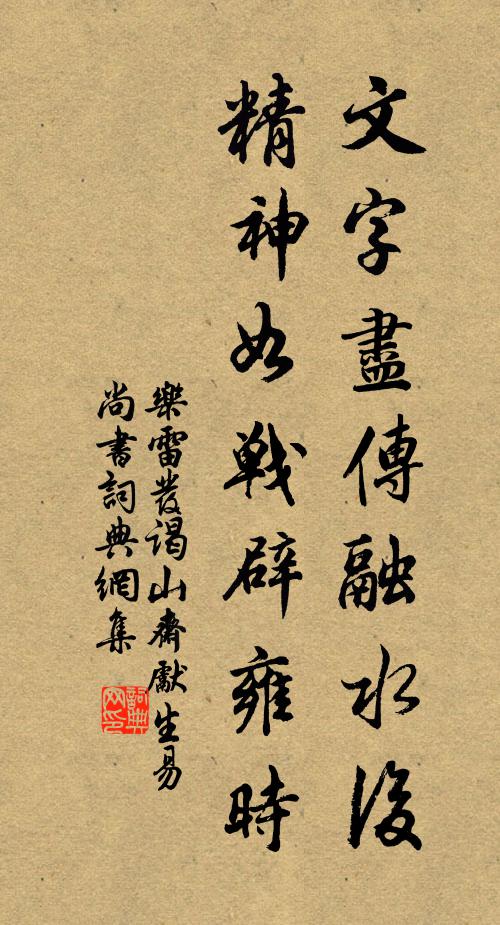 文字盡傳融水後
精神如戰辟雍時
樂雷發謁山齋獻生易
尚書詞典網集
詞典
网印